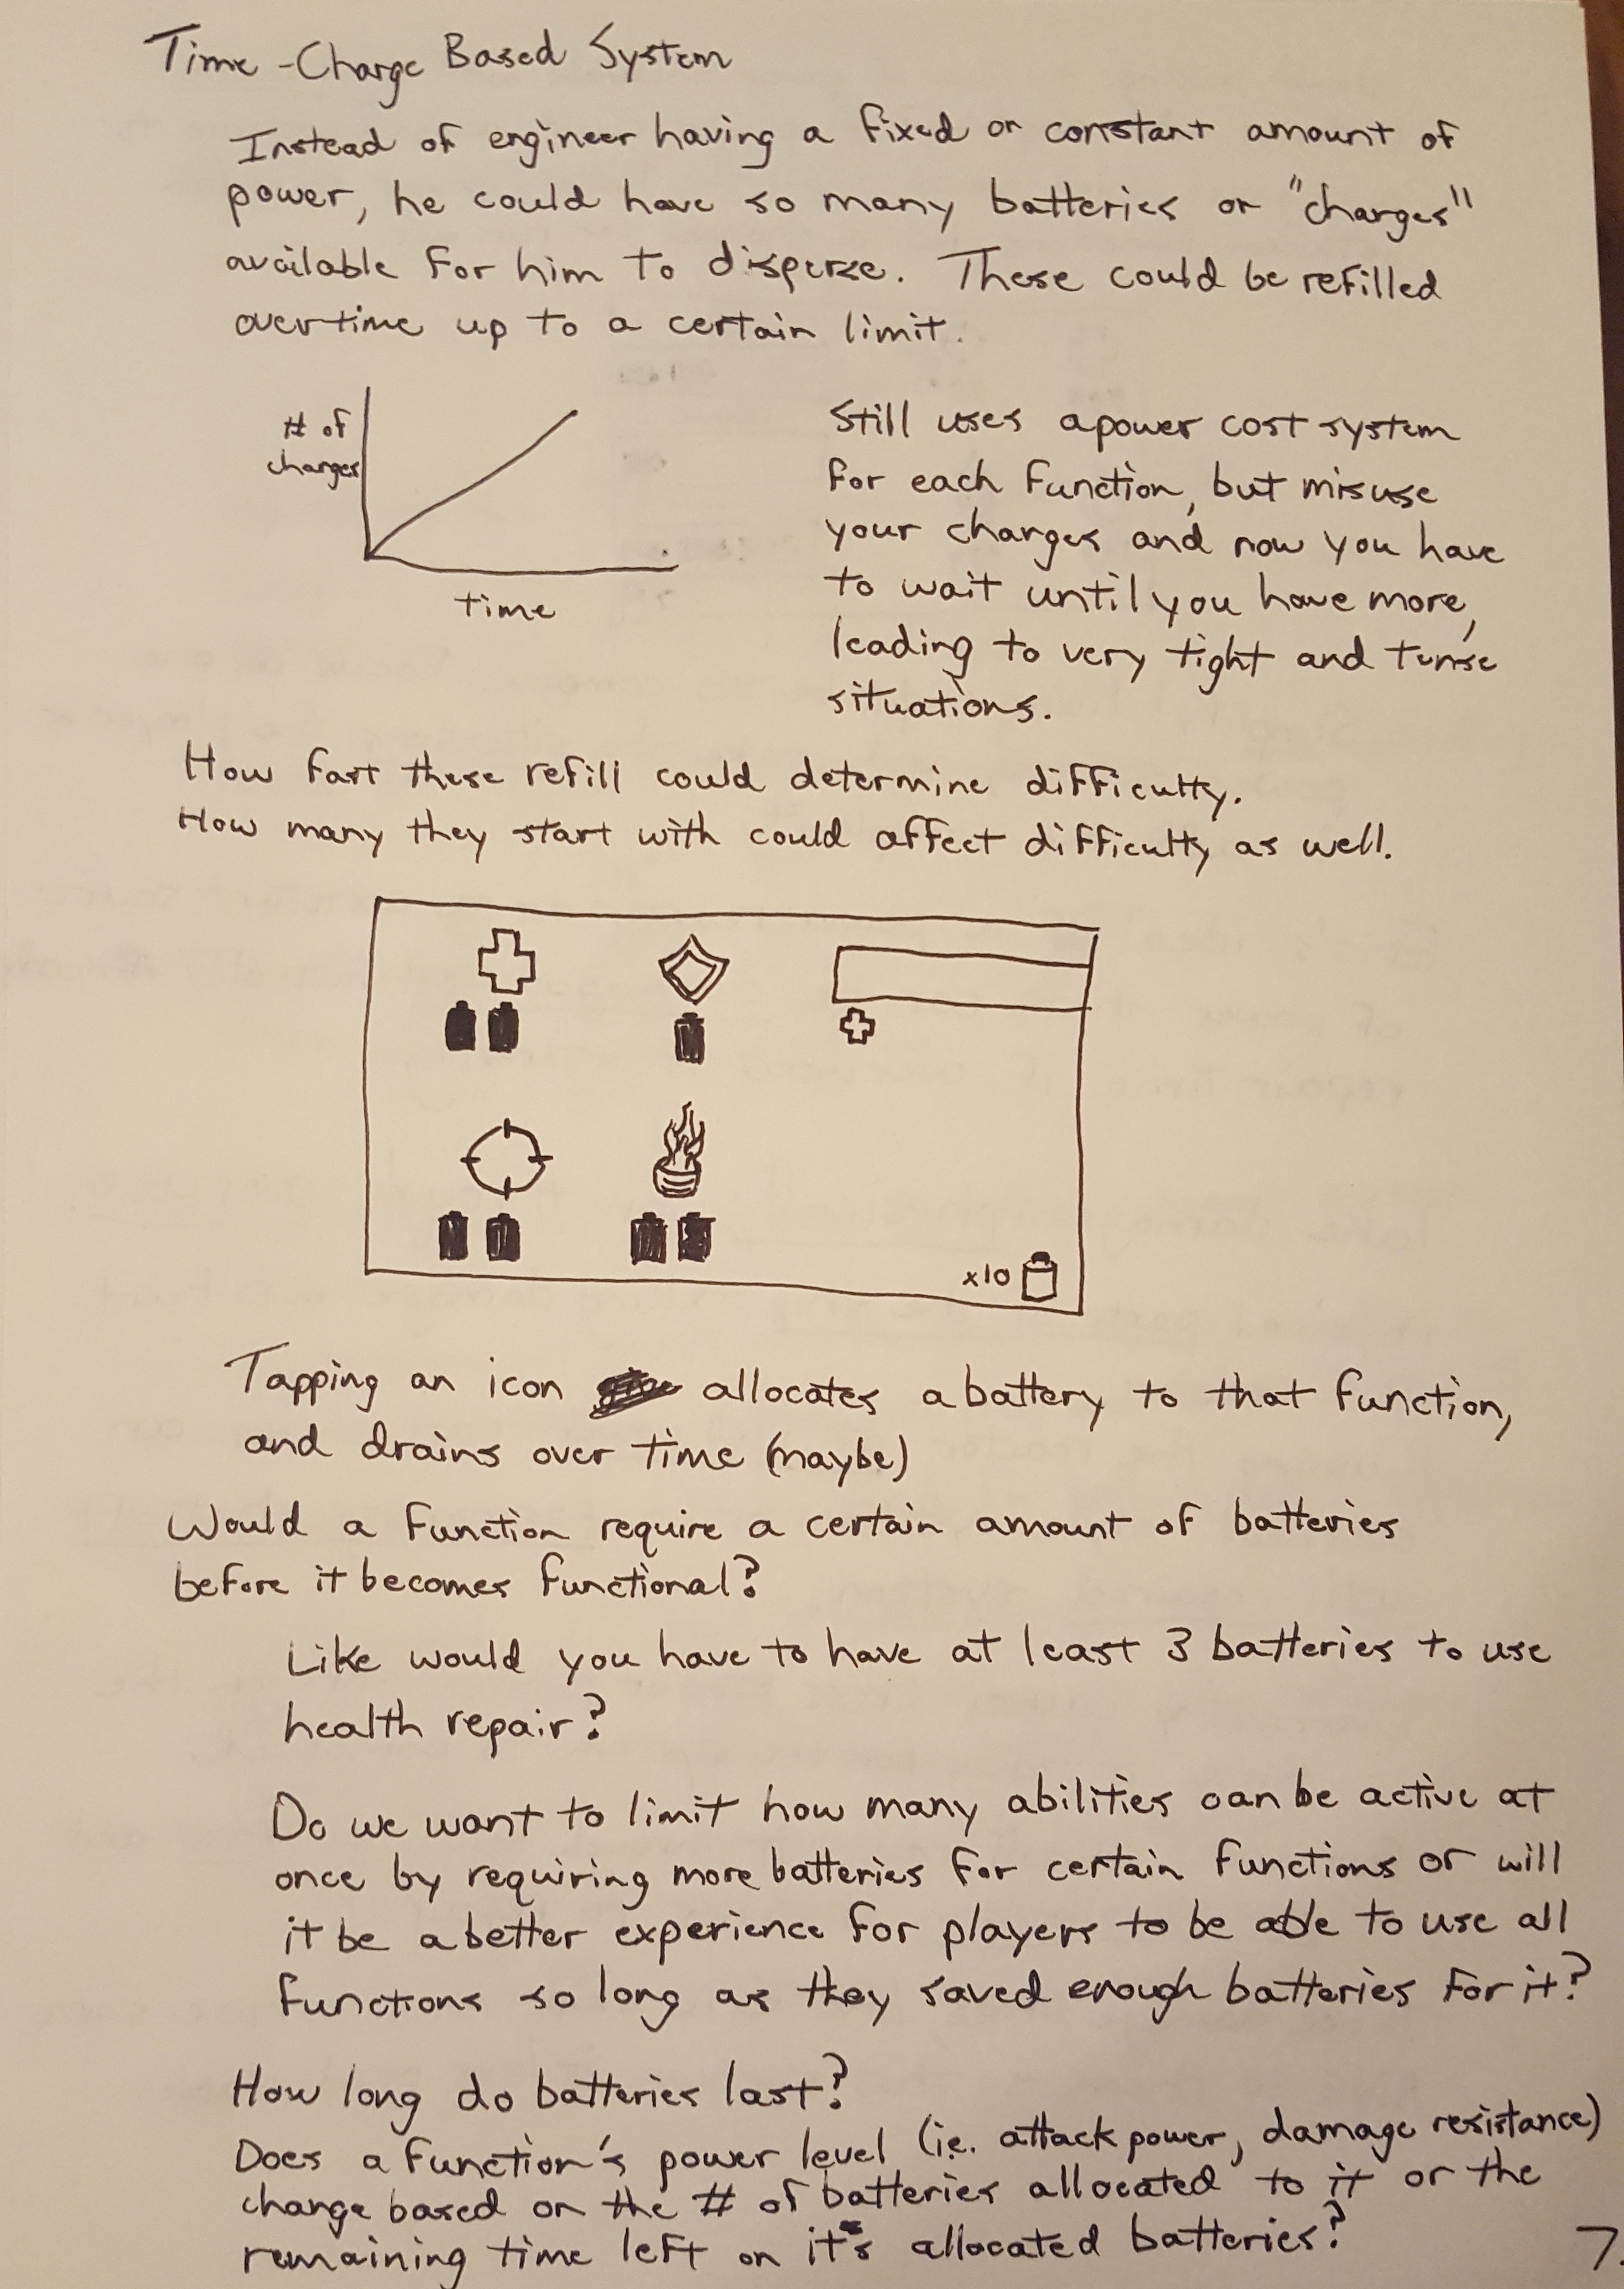 Time-Charge Based System
Instead of engineer having a fixed or constant amount of
power, he could have so many batteries or "charges"
available for him to disperse. These could be refilled
overtime up to a certain limit.
# of
charges
time
Still uses a power cost system
for each function, but misuse
your charges and now you have
to wait until you have more,
leading to very tight and tense
situations.
How fast these refill could determine difficulty.
How many they start with could affect difficulty as well.
x10
Tapping an icon allocates a battery to that function,
and drains over time (maybe)
Would a function require a certain amount of batteries
before it becomes functional?
Like would you have to have at least 3 batteries to use
health repair?
Do we want to limit how many abilities can be active at
once by requiring more batteries for certain functions or will
it be a better experience for players to be able to use all
functions so long as they saved enough batteries for it?
How long do batteries last?
Does a function's power level (ie. attack power, damage resistance)
change based on the # of batteries allocated to it or the
remaining time left on it's allocated batteries?
7.